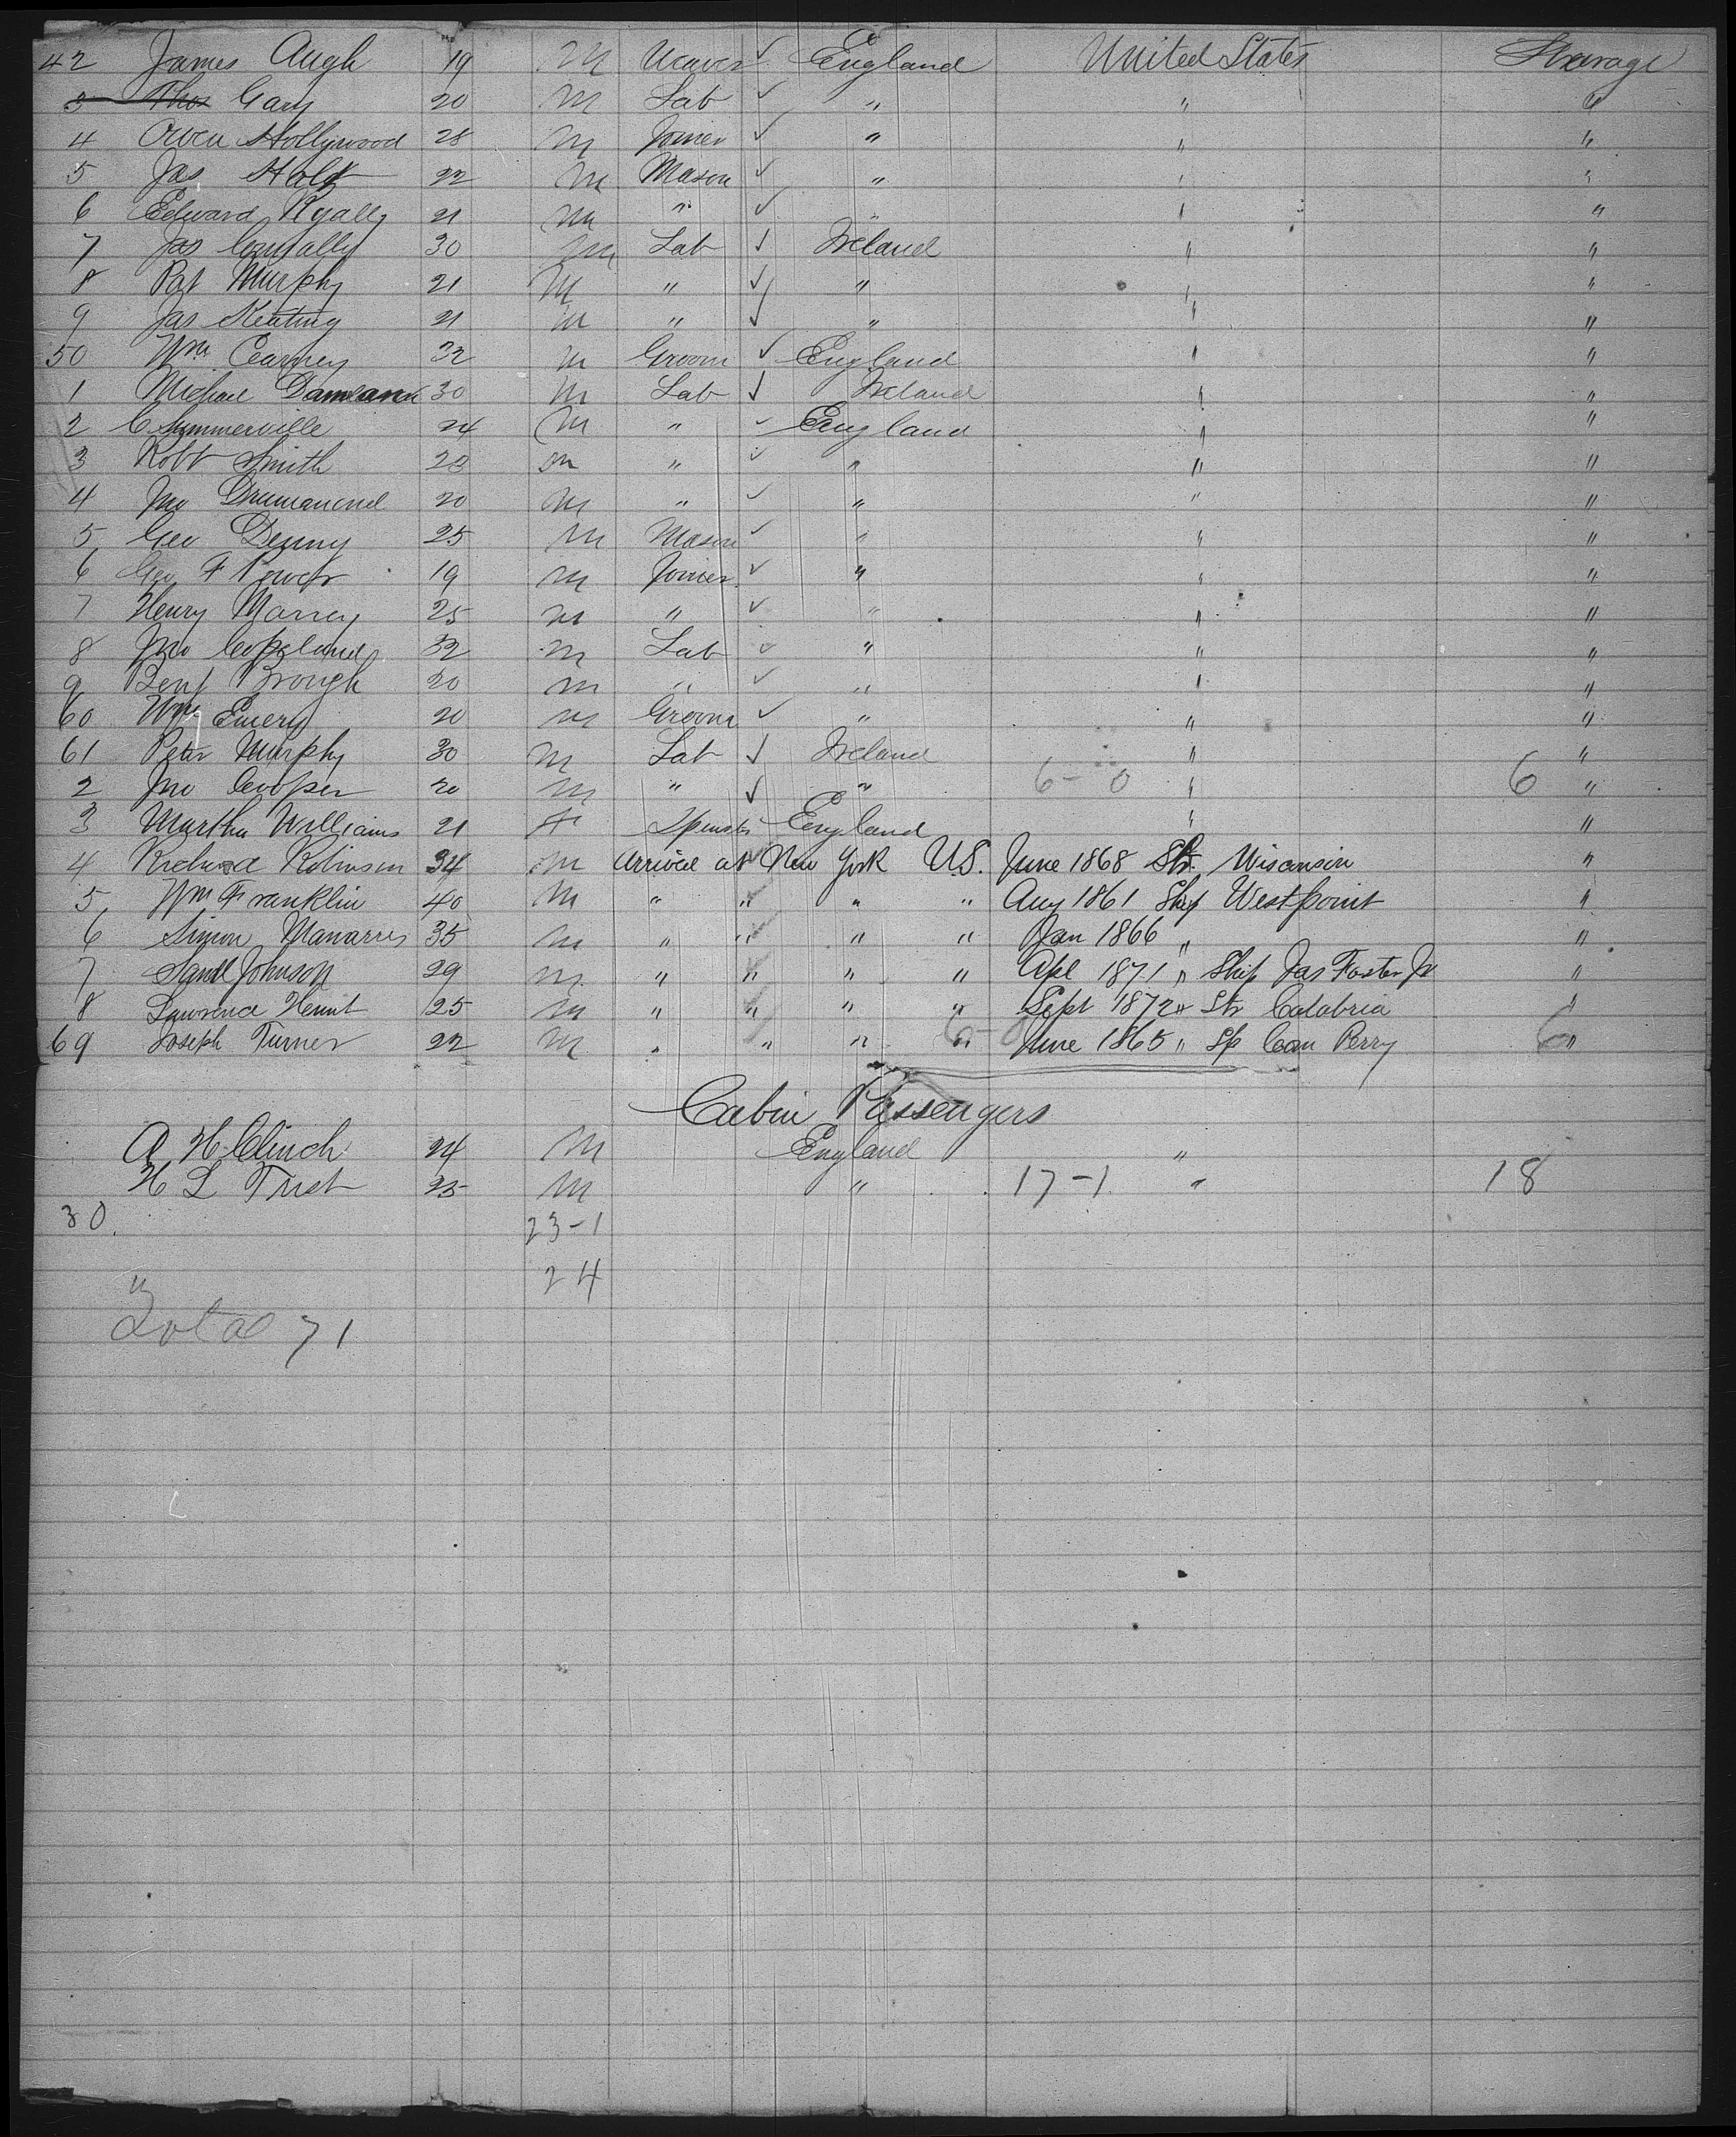 42 James Augh 19 M Weaver ✓ England United States Steerage
3 Thos Gary 20 M Lab ✓ " " "
4 Owen Hollywood 28 M Joiner ✓ " " "
5 Jas Holt 22 M Mason ✓ " " "
6 Edward Ryally 21 M " ✓ " " "
7 Jas Connally 30 M Lab ✓ Ireland " "
8 Pat Murphy 21 M " ✓ " " "
9 Jas Keating 21 M " ✓ " " "
50 Wm Cearney 32 M Groom ✓ England " "
1 Michael 30 M Lab ✓ Ireland " "
2 C Summerville 24 M " ✓ England " "
3 Robt Smith 28 M " ✓ " " "
4 Jno Drumancnd 20 M " ✓ " " "
5 Geo Denny 25 M Mason ✓ " " "
6 Geo F Power 19 M Joiner ✓ " " "
7 Henry Marrey 25 M " ✓ " " "
8 Jno Copeland 32 M Lab ✓ " " "
9 Benj Brough 20 M " ✓ " " "
60 Wm Emery 20 M Groom ✓ " " "
61 Peter Murphy 30 M Lab ✓ Ireland " "
2 Jno Cooper 20 M " ✓ " 6-0 " 6 "
3 Martha Williams 21 F Spinstr England " "
4 Richard Robinson 34 M Arrived at New York U.S. June 1868 Str. Wisconsin "
5 Wm Franklin 40 M " " " " Aug 1861 Ship Westpoint "
6 Simon Manarres 35 M " " " " Jan 1866 " "
7 Saml Johnson 29 M " " " " Apl 1871 " Ship Jas Foster Jr "
8 Lawrence 25 M " " " " Sept 1872 " Str Calabria "
69 Joseph Turner 22 M " " " " 6-0 June 1865 " Sp Com Perry 6 "
Cabin Passengers
A H Clinch 24 M England "
H L Trist 25 M " 17-1 " 18
30 23-1
24
Total 71